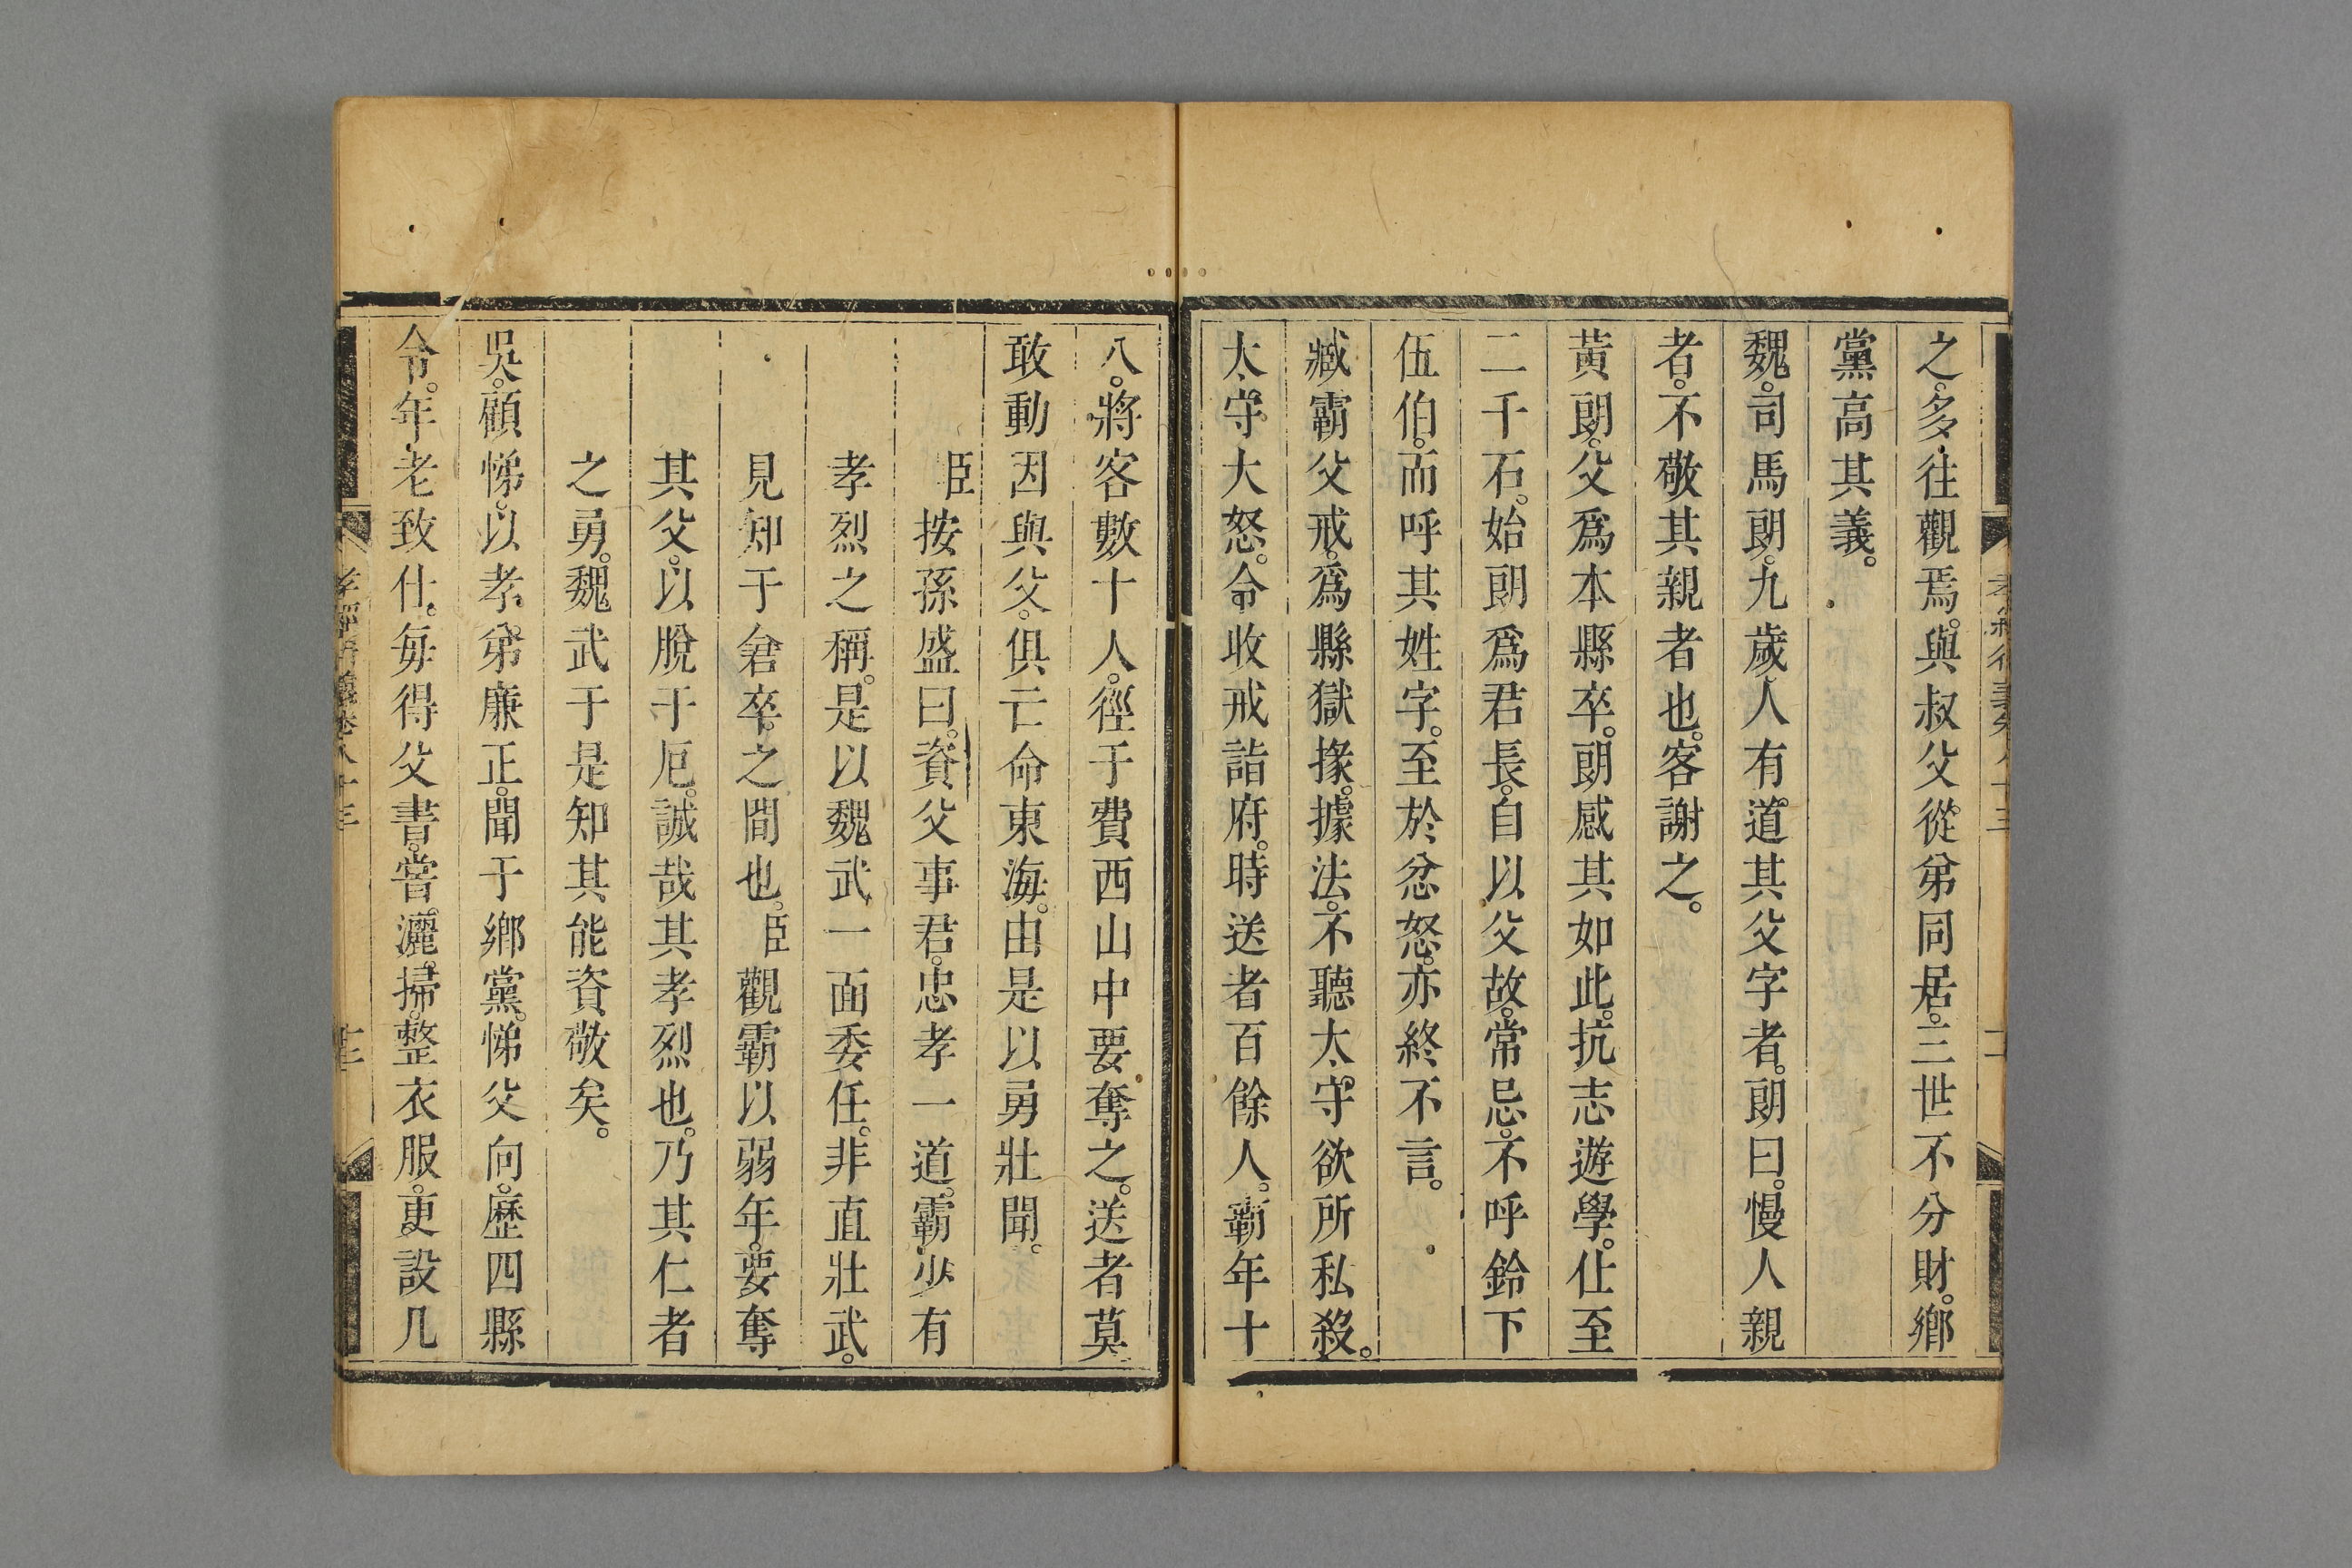 之。多往觀焉。與叔父從弟同居。三世不分財。鄉
黨高其義。
魏。司馬朗。九歲人有道其父字者。朗曰。慢人親
者。不敬其親者也。客謝之。
黃朗。父爲本縣卒。朗感其如此。抗志遊學。仕至
二千石。始朗爲君長。自以父故。常忌。不呼鈴下
伍伯。而呼其姓字。至於忿怒。亦終不言。
臧霸父戒。爲縣獄掾。據法。不聽太守欲所私殺。
太守大怒。令收戒詣府。時送者百餘人。霸年十
八。將客數十人。徑于費西山中要奪之。送者莫
敢動因與父。俱亡命東海。由是以勇壯聞。
臣按孫盛曰。資父事君。忠孝一道。霸少有
孝烈之稱。是以魏武一面委任。非直壯武。
見知于倉卒之間也。臣觀霸以弱年。要奪
其父。以脫于厄。誠哉其孝烈也。乃其仁者
之勇。魏武于是知其能資敬矣。
吳。顧悌。以孝弟廉正。聞于鄉黨。悌父向。歷四縣
令。年老致仕。每得父書。嘗灑。掃。整衣服。更設几